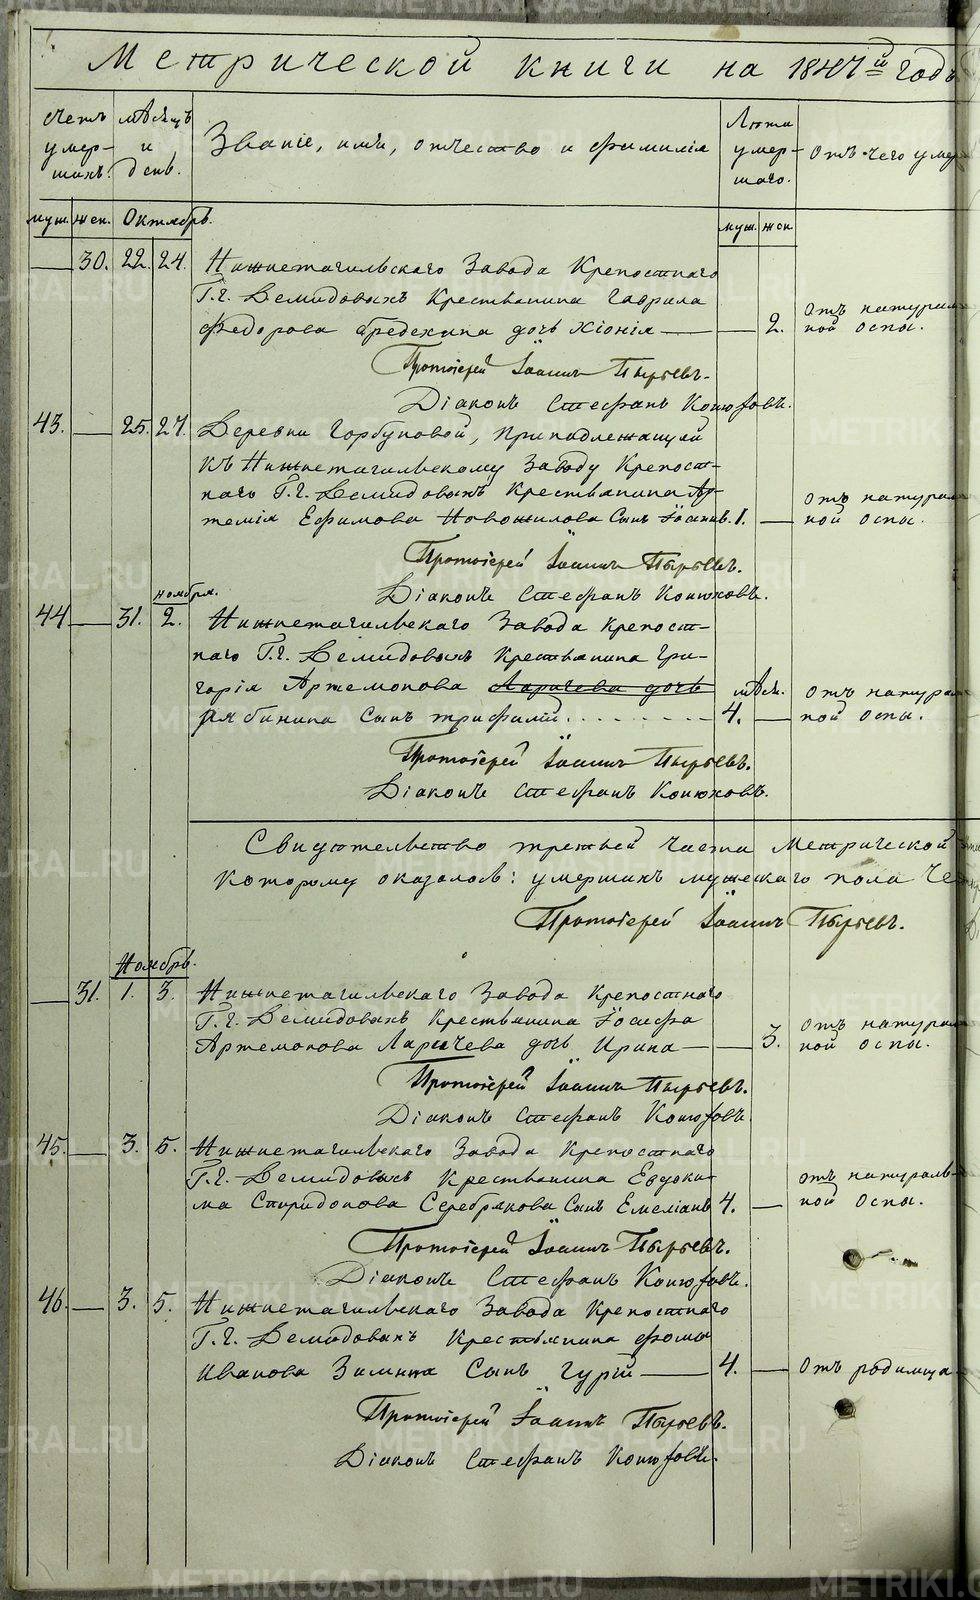 Метрической книги на 1847й годъ
Счетъ умер-шихъ. Мѣсяцъ и день. Званіе, имя, отчество и фамилія Лѣта умер-шаго. Отъ чего умер
муж. жен. Октябрь. муж. жен.
30. 22. 24. Нижнетагильскаго Завода Крепостнаго
Г.г. Демидовыхъ Крестьянина Гаврила
Федорова дочь Хіонія 2. Отъ натураль-
ной оспы.
Протоіерей Іоаннъ Пырьевъ.
Діаконъ Стефанъ Конюховъ.
43. 25. 27. Деревни Горбуновой, принадлежащей
къ Нижнетагильскому Заводу Крепост-
наго Г.г. Демидовыхъ Крестьянина Ар-
темія Ефимова Новожилова Сынъ Іоаннъ. 1. Отъ натураль-
ной оспы.
Протоіерей Іоаннъ Пырьевъ.
Діаконъ Стефанъ Конюховъ.
ноября.
44 31. 2. Нижнетагильскаго Завода крепост-
наго Г.г. Демидовыхъ Крестьянина Гри-
горія Артемонова Ларичева дочь мѣс. Отъ натураль
рябинина Сынъ трифилій. 4. ной оспы.
Протоіерей Іоаннъ Пырьевъ.
Діаконъ Стефанъ Конюховъ.
Свидѣтельство третьей части Метрической
которому оказалось: умершихъ мужескаго пола Че
Протоіерей Іоаннъ Пырьевъ.
Ноябрь.
31. 1. 3. Нижнетагильскаго Завода Крепостнаго
Г.г. Демидовыхъ Крестьянина Іосифа
Артемонова Ларичева дочь Ирина 3. Отъ натураль
ной оспы.
Протоіерей Іоаннъ Пырьевъ.
Діаконъ Стефанъ Конюховъ
45. 3. 5. Нижнетагильскаго Завода Крепостнаго
Г.г. Демидовыхъ Крестьянина Евдоки-
ма Спиридонова Серебрякова Сынъ Емеліанъ 4. отъ натураль-
ной оспы.
Протоіерей Іоаннъ Пырьевъ.
Діаконъ Стефанъ Конюховъ.
46. 3. 5. Нижнетагильскаго Завода Крепостнаго
Г.г. Демидовыхъ Крестьянина Фомы
Иванова Сынъ Гурій 4. Отъ родимца
Протоіерей Іоаннъ Пырьевъ.
Діаконъ Стефанъ Конюховъ.
METRIKI.GASO-URAL.RU